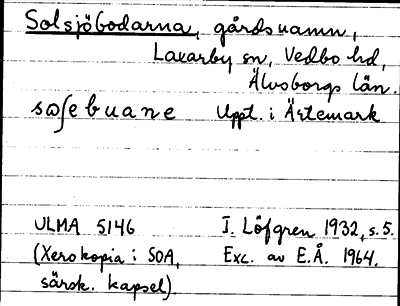 Solsjöbodarna, gårdsnamn,
Laxarby sn, Vedbo hd,
Älvsborgs län.
sωʃebuane Uppt. i Ärtemark
ULMA 5146 I. Löfgren 1932, s. 5.
(Xerokopia i SOA, Exc. av E.Å. 1964.
särsk. kapsel)